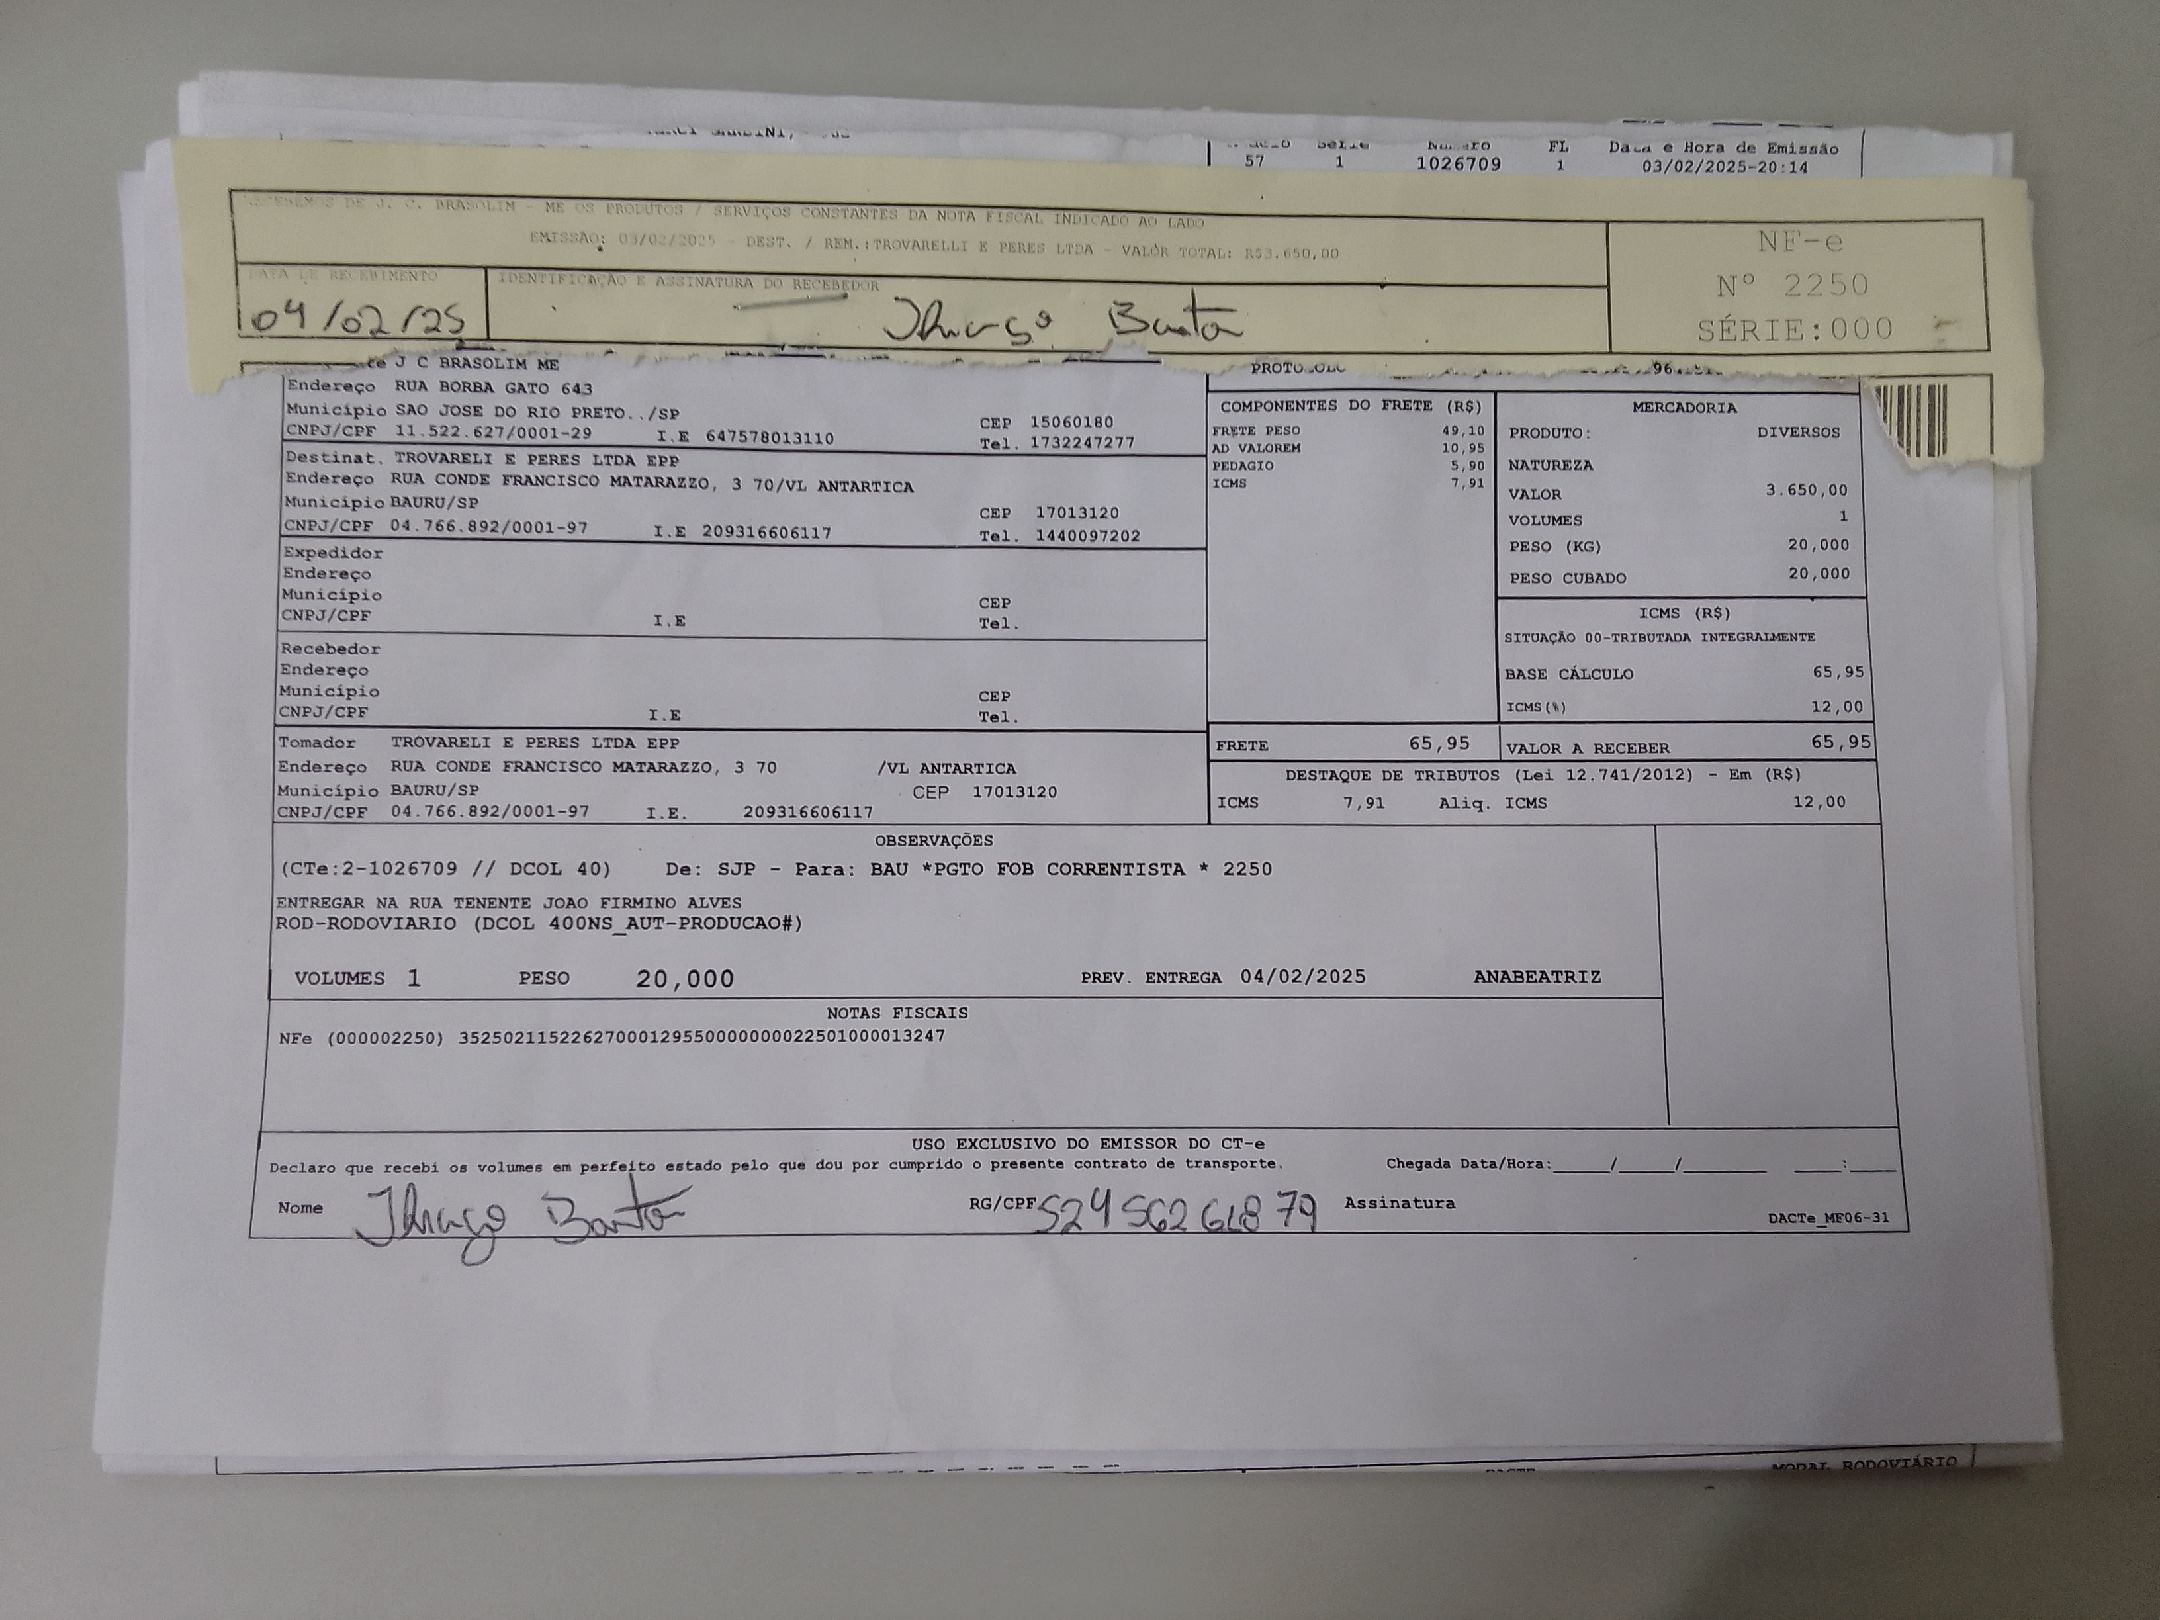 Número FL Data e Hora de Emissão
57 1 1026709 1 03/02/2025-20:14
RECEBEMOS DE J. C. BRASOLIM - ME OS PRODUTOS / SERVIÇOS CONSTANTES DA NOTA FISCAL INDICADO AO LADO
EMISSÃO: 03/02/2025 - DEST. / REM.:TROVARELLI E PERES LTDA - VALOR TOTAL: R$3.650,00
NF-e
Nº 2250
SÉRIE:000
DATA DE RECEBIMENTO IDENTIFICAÇÃO E ASSINATURA DO RECEBEDOR
04/02/25 Thiago
J C BRASOLIM ME
Endereço RUA BORBA GATO 643
Município SAO JOSE DO RIO PRETO../SP CEP 15060180
CNPJ/CPF 11.522.627/0001-29 I.E 647578013110 Tel. 1732247277
Destinat. TROVARELI E PERES LTDA EPP
Endereço RUA CONDE FRANCISCO MATARAZZO, 3 70/VL ANTARTICA
Município BAURU/SP CEP 17013120
CNPJ/CPF 04.766.892/0001-97 I.E 209316606117 Tel. 1440097202
Expedidor
Endereço
Município CEP
CNPJ/CPF I.E Tel.
Recebedor
Endereço
Município CEP
CNPJ/CPF I.E Tel.
Tomador TROVARELI E PERES LTDA EPP
Endereço RUA CONDE FRANCISCO MATARAZZO, 3 70 /VL ANTARTICA
Município BAURU/SP CEP 17013120
CNPJ/CPF 04.766.892/0001-97 I.E. 209316606117
PROTOCOLO
COMPONENTES DO FRETE (R$)
FRETE PESO 49,10
AD VALOREM 10,95
PEDAGIO 5,90
ICMS 7,91
MERCADORIA
PRODUTO: DIVERSOS
NATUREZA
VALOR 3.650,00
VOLUMES 1
PESO (KG) 20,000
PESO CUBADO 20,000
ICMS (R$)
SITUAÇÃO 00-TRIBUTADA INTEGRALMENTE
BASE CÁLCULO 65,95
ICMS(%) 12,00
FRETE 65,95 VALOR A RECEBER 65,95
DESTAQUE DE TRIBUTOS (Lei 12.741/2012) - Em (R$)
ICMS 7,91 Aliq. ICMS 12,00
OBSERVAÇÕES
(CTe:2-1026709 // DCOL 40) De: SJP - Para: BAU *PGTO FOB CORRENTISTA * 2250
ENTREGAR NA RUA TENENTE JOAO FIRMINO ALVES
ROD-RODOVIARIO (DCOL 400NS_AUT-PRODUCAO#)
VOLUMES 1 PESO 20,000 PREV. ENTREGA 04/02/2025 ANABEATRIZ
NOTAS FISCAIS
NFe (000002250) 35250211522627000129550000000022501000013247
USO EXCLUSIVO DO EMISSOR DO CT-e
Declaro que recebi os volumes em perfeito estado pelo que dou por cumprido o presente contrato de transporte. Chegada Data/Hora:_____/_____/_______ ____:____
Nome Thiago RG/CPF Assinatura
DACTe_MF06-31
DACTE MODAL RODOVIÁRIO